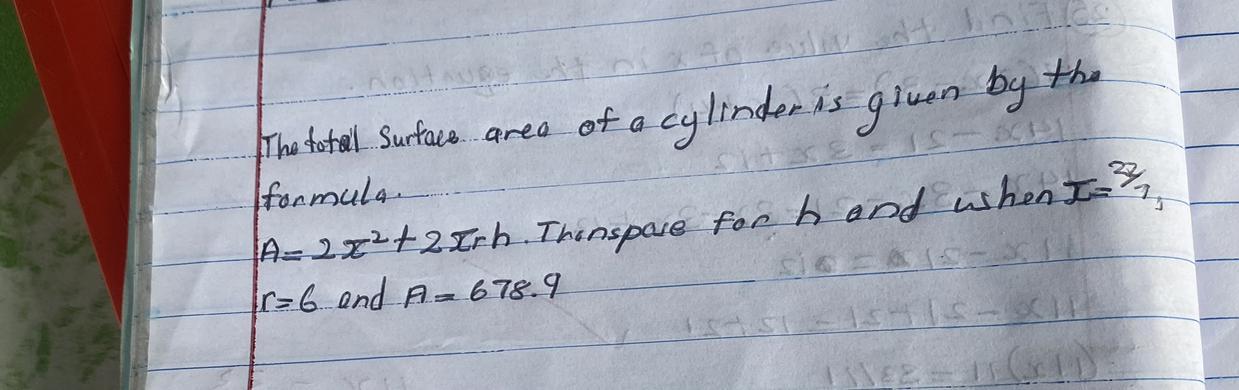 The total Surface area of a cylinder is given by the
formula.
A = 2πr² + 2πrh. Transpose for h and when π = 22/7,
r = 6 and A = 678.9